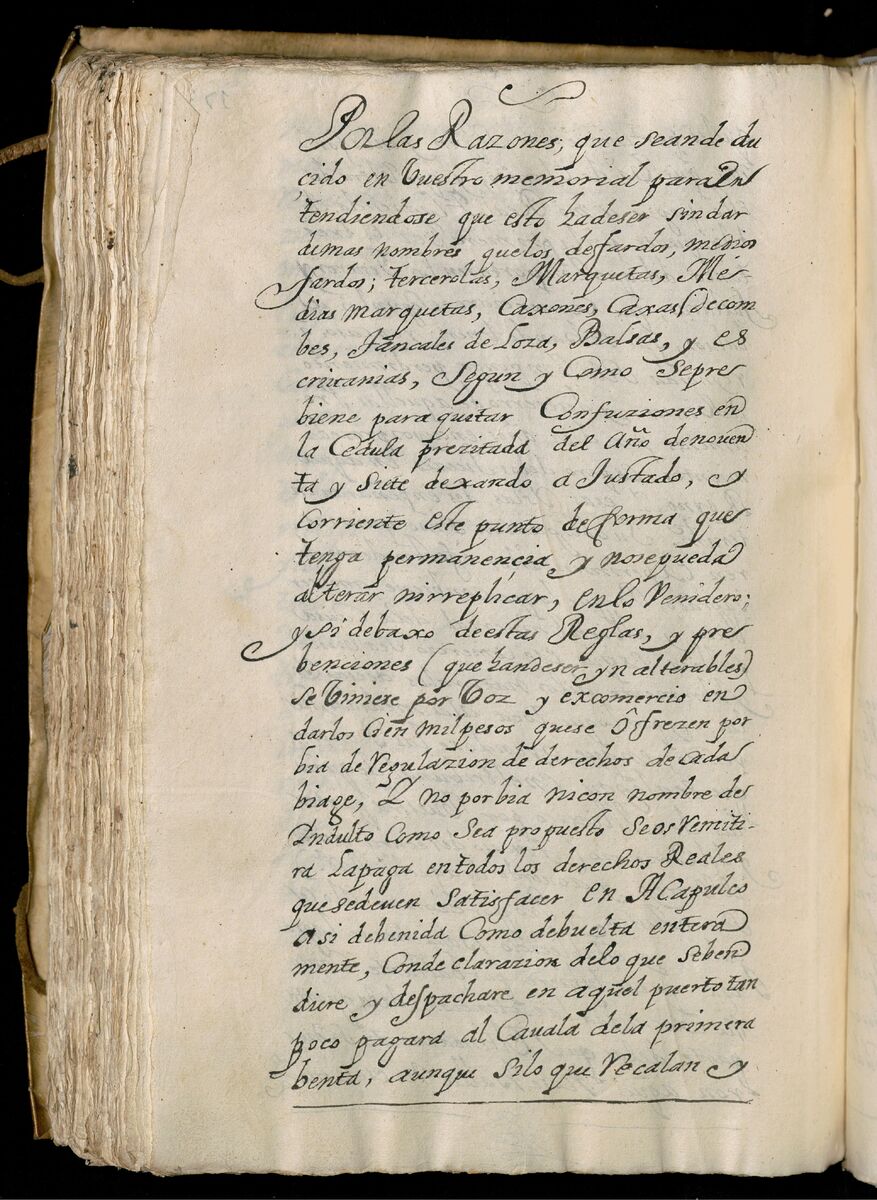 Por las Razones, que seande du
cido en Vuestro memorial para En
tendiendose que esto hadeser sin dar
demas nombres quelos defardos, medios
fardos; tercerolas, Marquetas, Me-
dias marquetas, Caxones, Caxas decom
bes, Tancales de Loza, Balsas, y es
crivanias, Segun y Como Sepre
biene para quitar Confuziones en
la Cedula prezitada del Año denoven
ta y Siete dexando a Justado, y
Corriente este punto de forma que
tenga permanencia y nosepueda
alterar nirreplicar, en lo Venidero;
y Si debaxo deestas Reglas, y pre
benciones (que handeser yn alterables)
se Viniere por Voz y excomercio en
darlos Cien mil pesos quese Ofrezen por
bia de Regulazion de derechos de cada
biage, Y no por bia nicon nombre de
Yndulto Como Sea propuesto Seos Remiti-
ra Lapaga en todos los derechos Reales
que sedeven Satisfacer en Acapulco
asi debenida Como debuelta entera
mente, Conde clarazion delo que Seben
diere y despachare en aquel puerto tan
poco pagara al Cavala dela primera
benta, aunque Silo que Recalan y